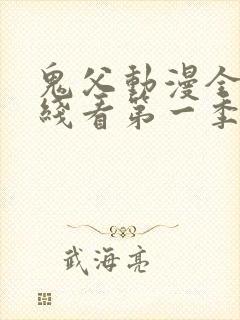 鬼父動漫全
綫看第一季
武海亮